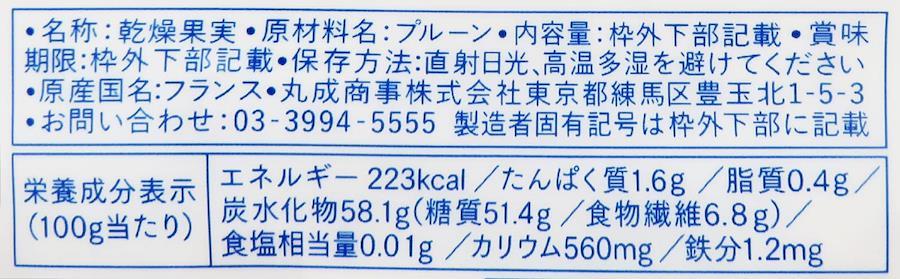 •名称:乾燥果実•原材料名:プルーン•内容量:枠外下部記載•賞味
期限:枠外下部記載•保存方法:直射日光、高温多湿を避けてください
•原産国名:フランス•丸成商事株式会社東京都練馬区豊玉北1-5-3
•お問い合わせ:03-3994-5555 製造者固有記号は枠外下部に記載
栄養成分表示
(100g当たり)
エネルギー223kcal／たんぱく質1.6g／脂質0.4g／
炭水化物58.1g(糖質51.4g／食物繊維6.8g)／
食塩相当量0.01g／カリウム560mg／鉄分1.2mg